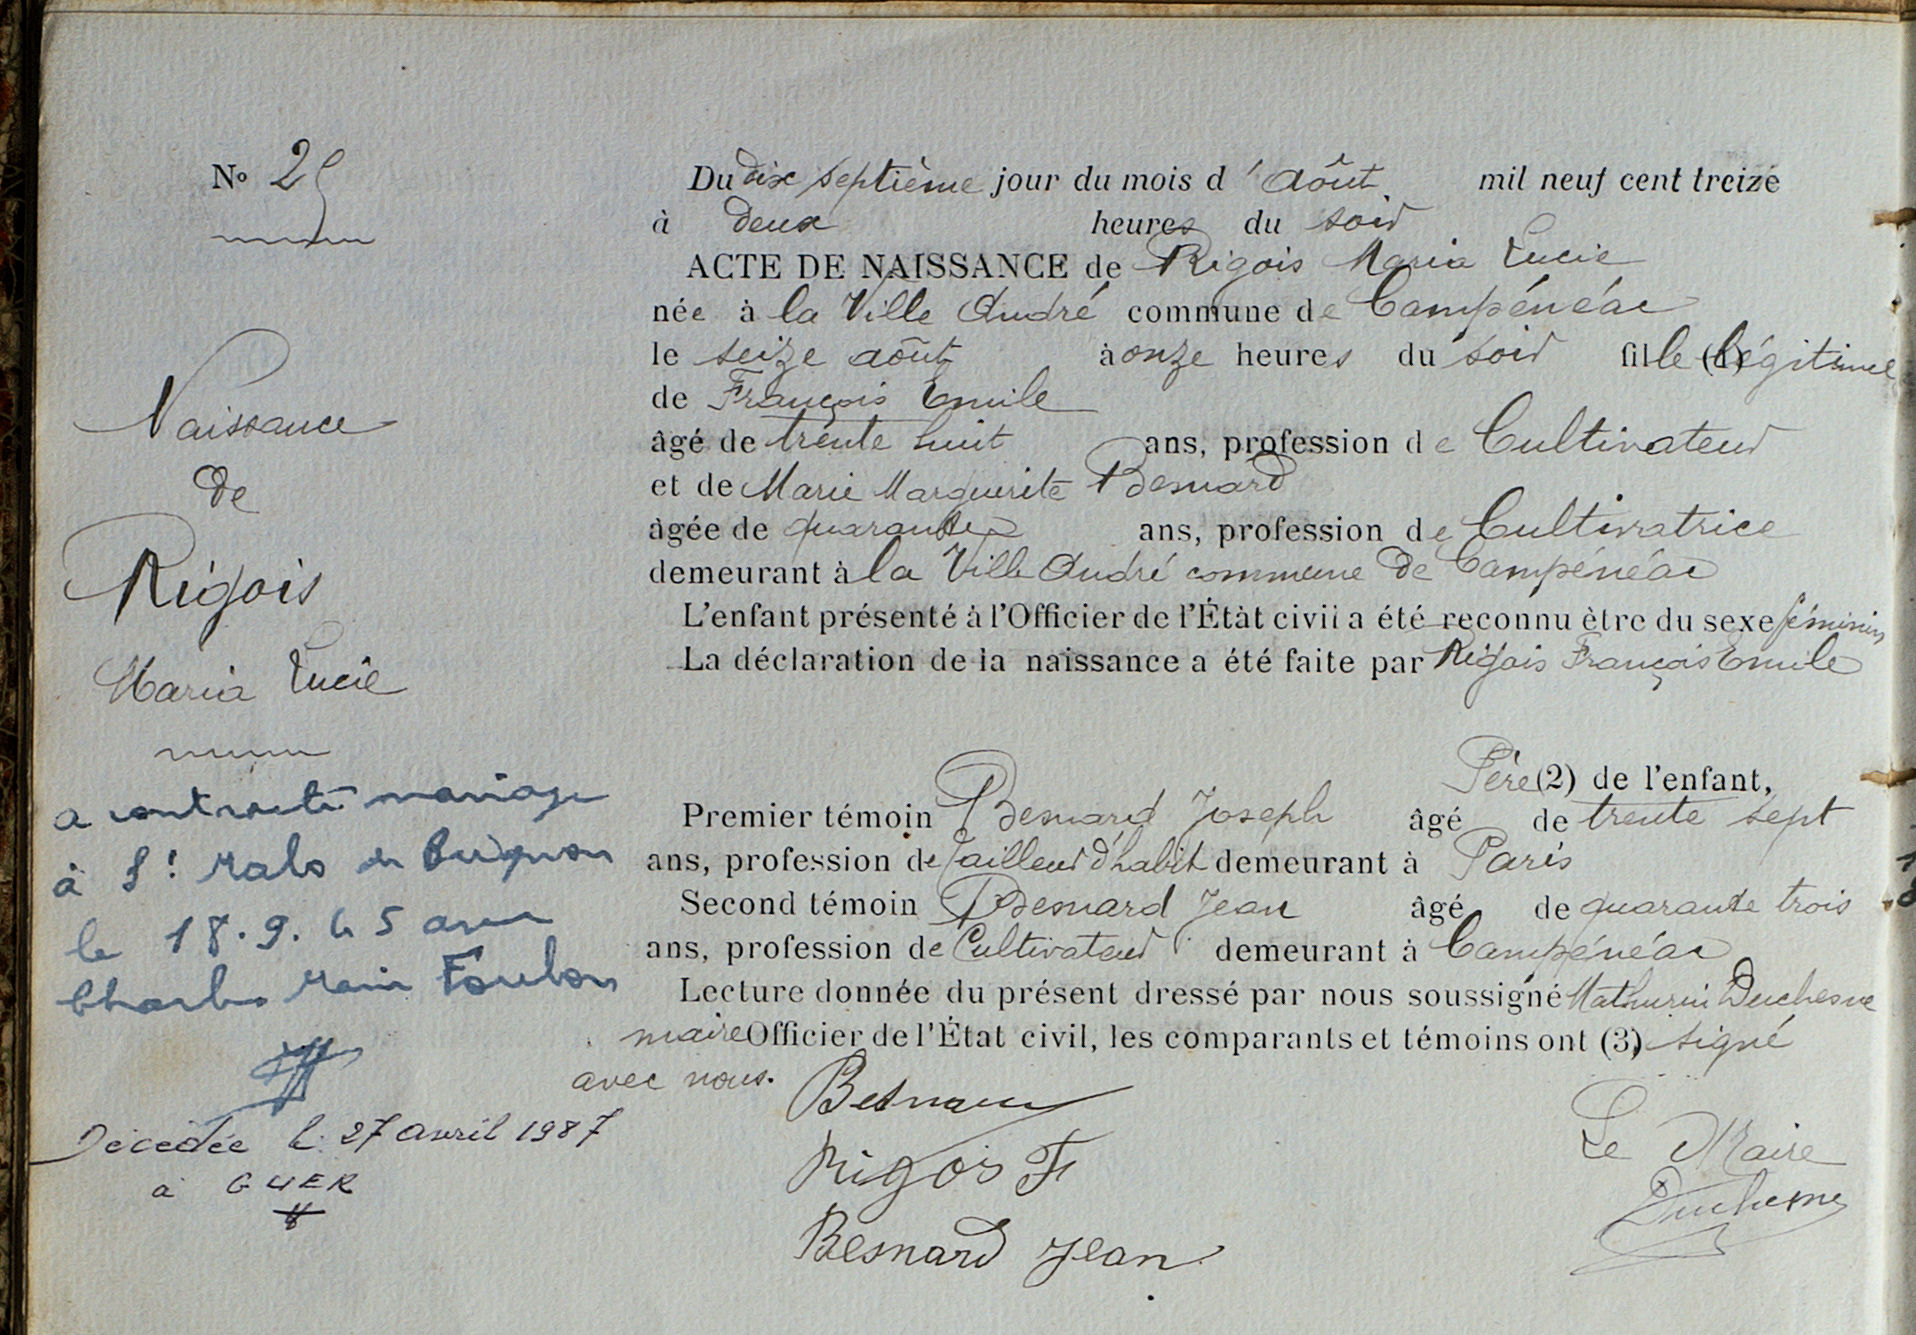 No 25
Naissance
de
Rigois
Maria Lucie
a contracté mariage
à St Malo de Beignon
le 18.9.45 avec
Charles Marie Foulon
Décédée le 27 avril 1987
à GUER
Du dix septième jour du mois d'Août mil neuf cent treize
à deux heures du soir
ACTE DE NAISSANCE de Rigois Maria Lucie
née à la Ville André commune de Campénéac
le seize août à onze heures du soir fille (1) légitime
de François Emile
âgé de trente huit ans, profession de Cultivateur
et de Marie Marguerite Besnard
âgée de quarante ans, profession de Cultivatrice
demeurant à la Ville André commune de Campénéac
L'enfant présenté à l'Officier de l'État civil a été reconnu être du sexe féminin
La déclaration de la naissance a été faite par Rigois François Emile
Père (2) de l'enfant,
Premier témoin Besnard Joseph âgé de trente sept
ans, profession de Tailleur d'habit demeurant à Paris
Second témoin Besnard Jean âgé de quarante trois
ans, profession de Cultivateur demeurant à Campénéac
Lecture donnée du présent dressé par nous soussigné Mathurin Duchesne
maire Officier de l'État civil, les comparants et témoins ont (3) signé
avec nous.
Besnard
Rigois F
Besnard Jean
Le Maire
Duchesne